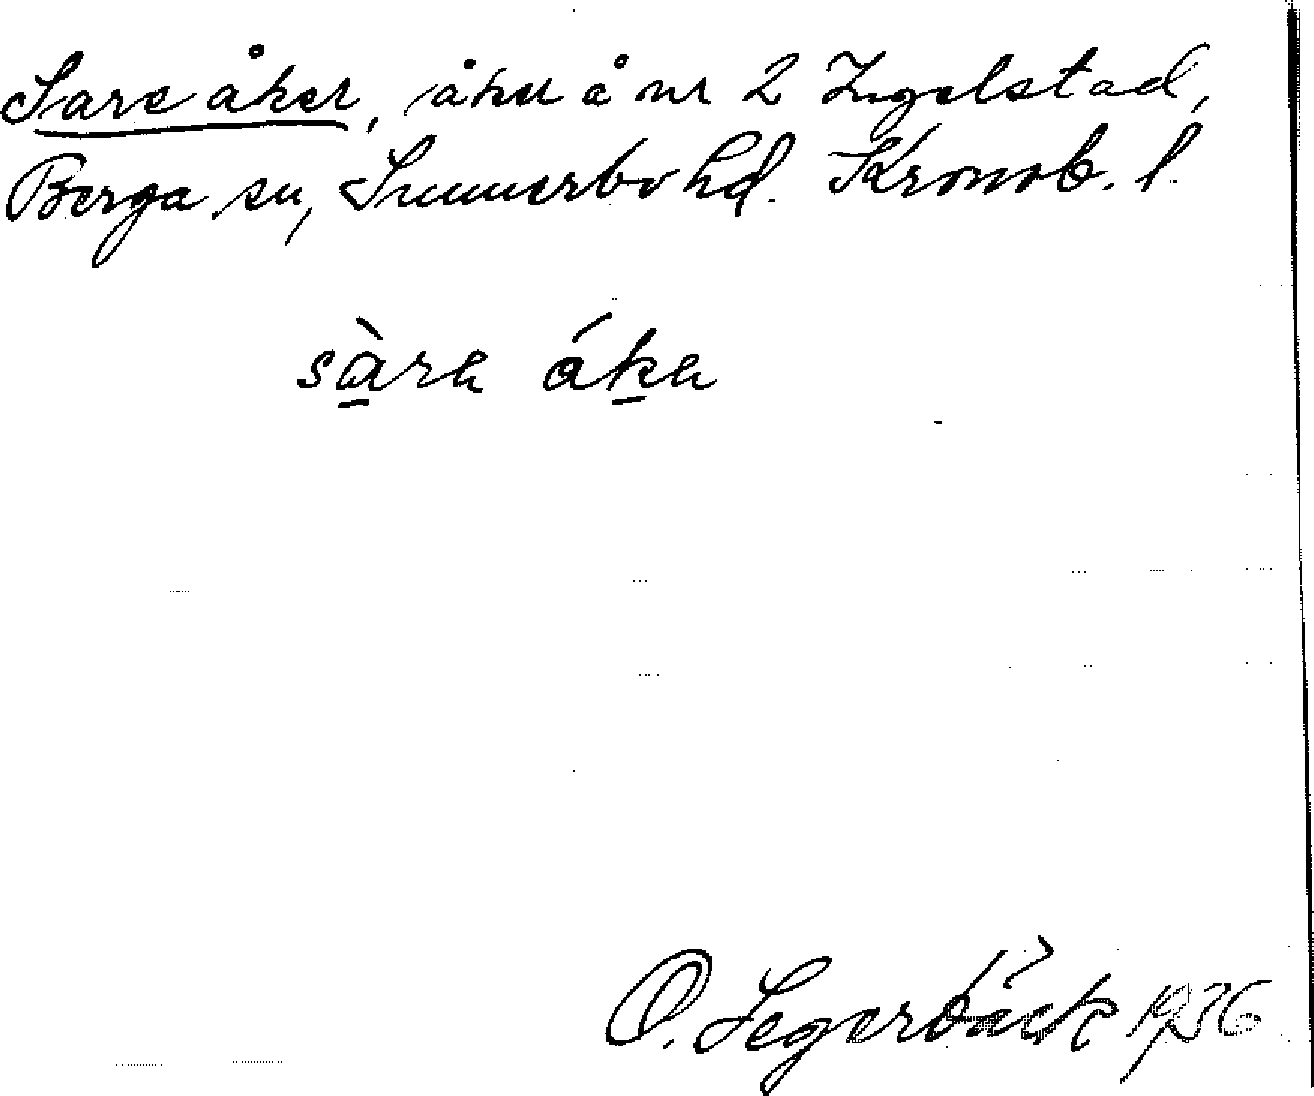 Sare åker, åker å nr 2 Ingelstad,
Berga sn, Sunnerbo hd. Kronob. l.
sàra áka
O. Segerbäck 1936